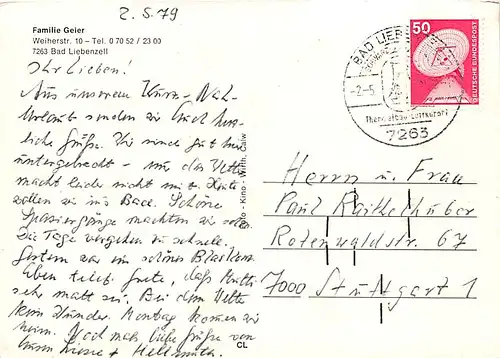 2.5.79
Familie Geier
Weiherstr. 10 – Tel. 0 70 52 / 23 00
7263 Bad Liebenzell
Ihr Lieben!
Aus unserem Kurz-
Urlaub senden wir Euch herz-
liche Grüße. Wir sind gut
untergebracht – nur das Wetter
macht leider nicht mit. Heute
wollen wir ins Bad. Schöne
Spaziergänge machten wir
Die Tage vergehen zu schnell.
Gestern war ein schönes
Eben telef. Grete, daß Mutti
sehr matt sei. Bei dem Wetter
kein Wunder. Montag kommen wir
heim. Nochmals liebe Grüße von
Euren + Hellmuth.
Foto - Kino - Wirth, Calw
CL
50
DEUTSCHE BUNDESPOST
BAD LIEBENZELL
-2.-5
Thermalbad Luftkurort
7263
Herrn u. Frau
Paul Raithelhuber
Rotenwaldstr. 67
7000 Stuttgart 1